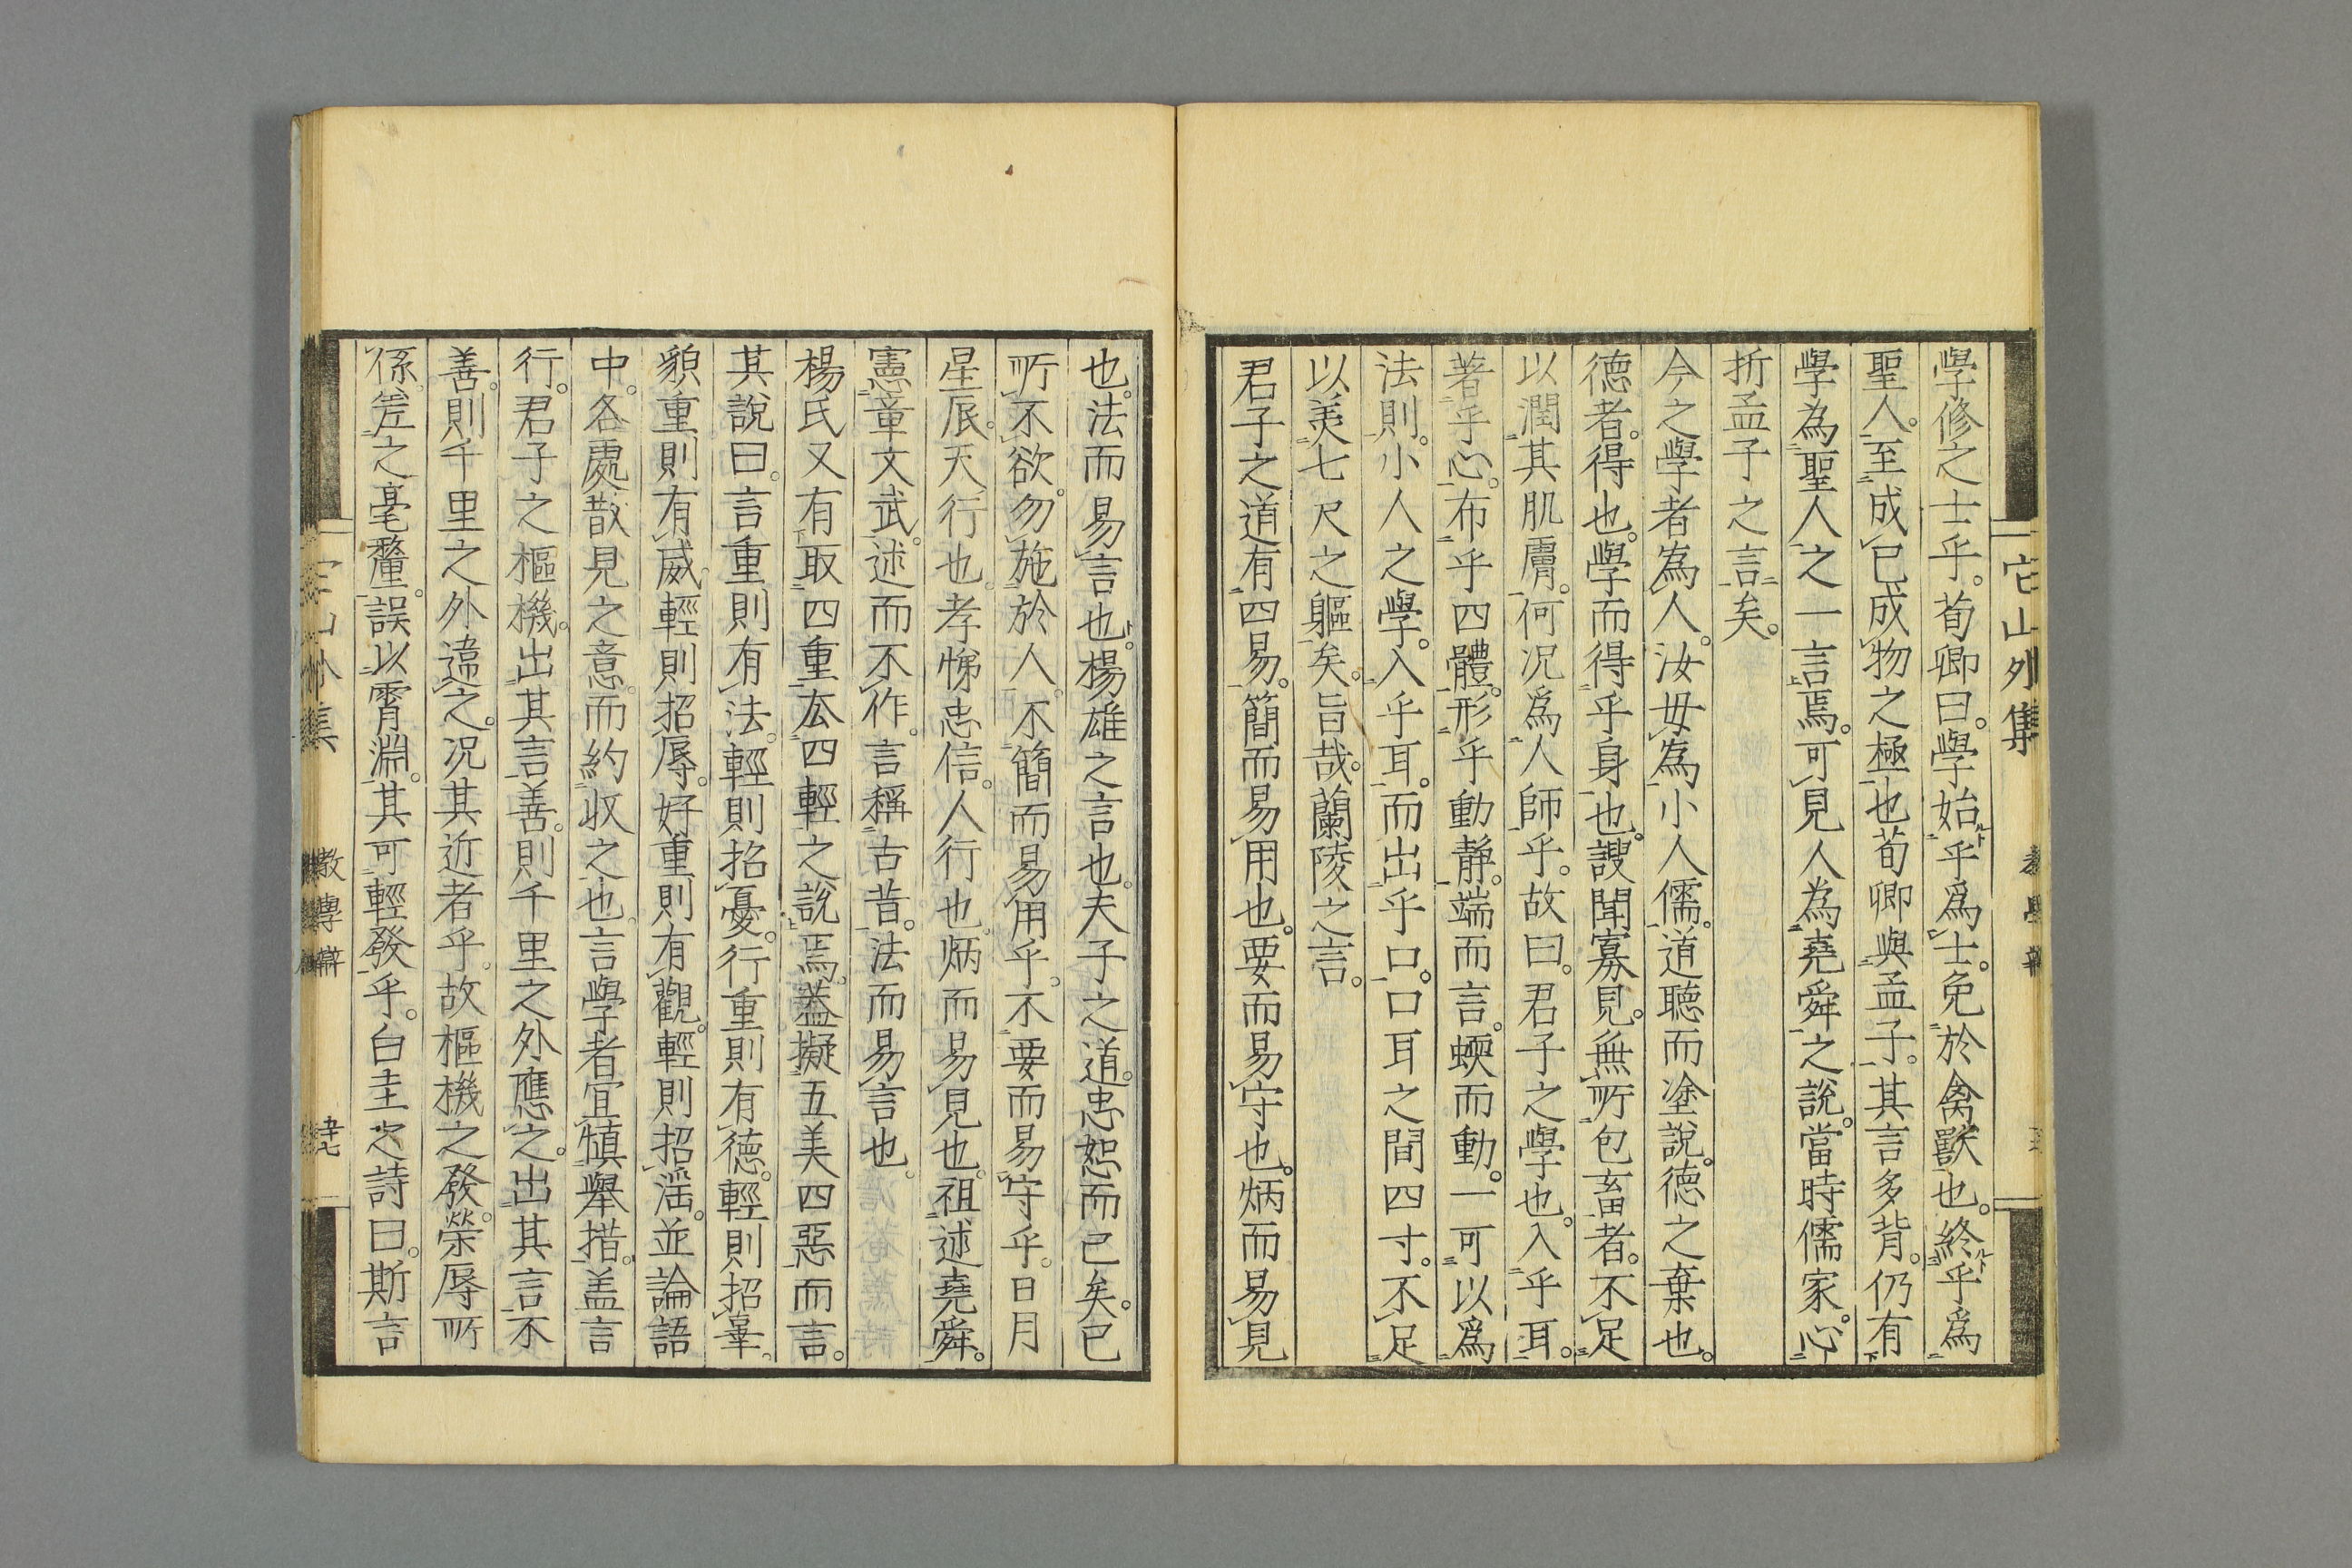 它山外集
學修之士乎。荀卿曰。學始乎爲士。免於禽獸也。終乎爲
聖人。至成已成物之極也荀卿與孟子。其言多背。仍有
學為聖人之一言焉。可見人為堯舜之說。當時儒家。心
折孟子之言矣。
今之學者為人。汝毋為小人儒。道聽而塗說。德之棄也。
德者。得也。學而得乎身也。謏聞寡見。無所包畜者。不足
以潤其肌膚。何况爲人師乎。故曰。君子之學也。入乎耳。
著乎心。布乎四體。形乎動靜。端而言。蝡而動。一可以爲
法則。小人之學。入乎耳。而出乎口。口耳之間四寸。不足
以美七尺之軀矣。旨哉。蘭陵之言。
君子之道有四易。簡而易用也。要而易守也。炳而易見
也。法而易言也。楊雄之言也。夫子之道。忠恕而已矣。已
所不欲。勿施於人。不簡而易用乎。不要而易守乎。日月
星辰。天行也。孝悌忠信。人行也。炳而易見也。祖述堯舜。
憲章文武。述而不作。言稱古昔。法而易言也。
楊氏又有取四重去四輕之說焉。蓋擬五美四惡而言。
其說曰。言重則有法。輕則招憂。行重則有德。輕則招辠。
貌重則有威。輕則招辱。好重則有觀。輕則招滛。並論語
中。各處散見之意。而約収之也。言學者宜愼舉措。盖言
行。君子之樞機。出其言善。則千里之外應之。出其言不
善。則千里之外違之。况其近者乎。故樞機之發。榮辱所
係。差之毫釐。誤以霄淵。其可輕發乎。白圭之詩曰。斯言
教專辯
五十七